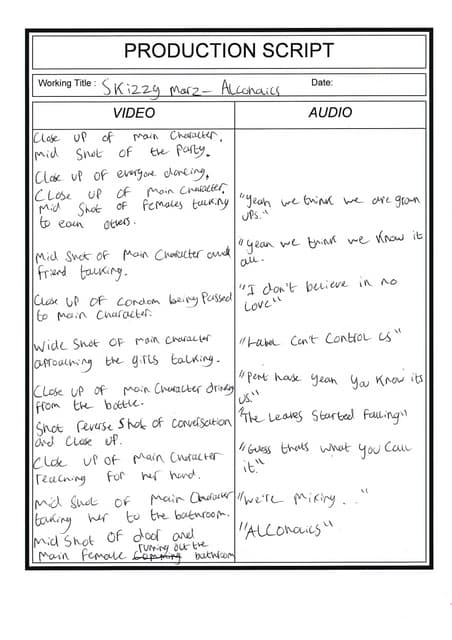 PRODUCTION SCRIPT
Working Title : Skizzy Marz - Alcoholics
Date:
VIDEO
Close up of main character,
Mid Shot of the Party.
Close up of everyone dancing,
Close up of main Character
Mid Shot of Females talking
to each others.
Mid Shot of Main Character and
friend talking.
Close up of condom being Passed
to main Character.
Wide Shot of main character
aproaching the girls talking.
Close up of main Character drinking
from the bottle.
Shot reverse Shot of conversation
and Close up.
Close up of main Character
reaching for her hand.
Mid Shot of main Character
taking her to the bathroom.
Mid Shot of door and
Main female running out the bathroom
AUDIO
"yeah we think we are grown
ups."
"yeah we think we know it
all.
"I don't believe in no
Love"
"Label Can't Control us"
"Pent house yeah you know its
us."
"The Leaves Started Falling"
"Guess thats what you call
it."
"We're Mixing . . "
"Alcoholics"